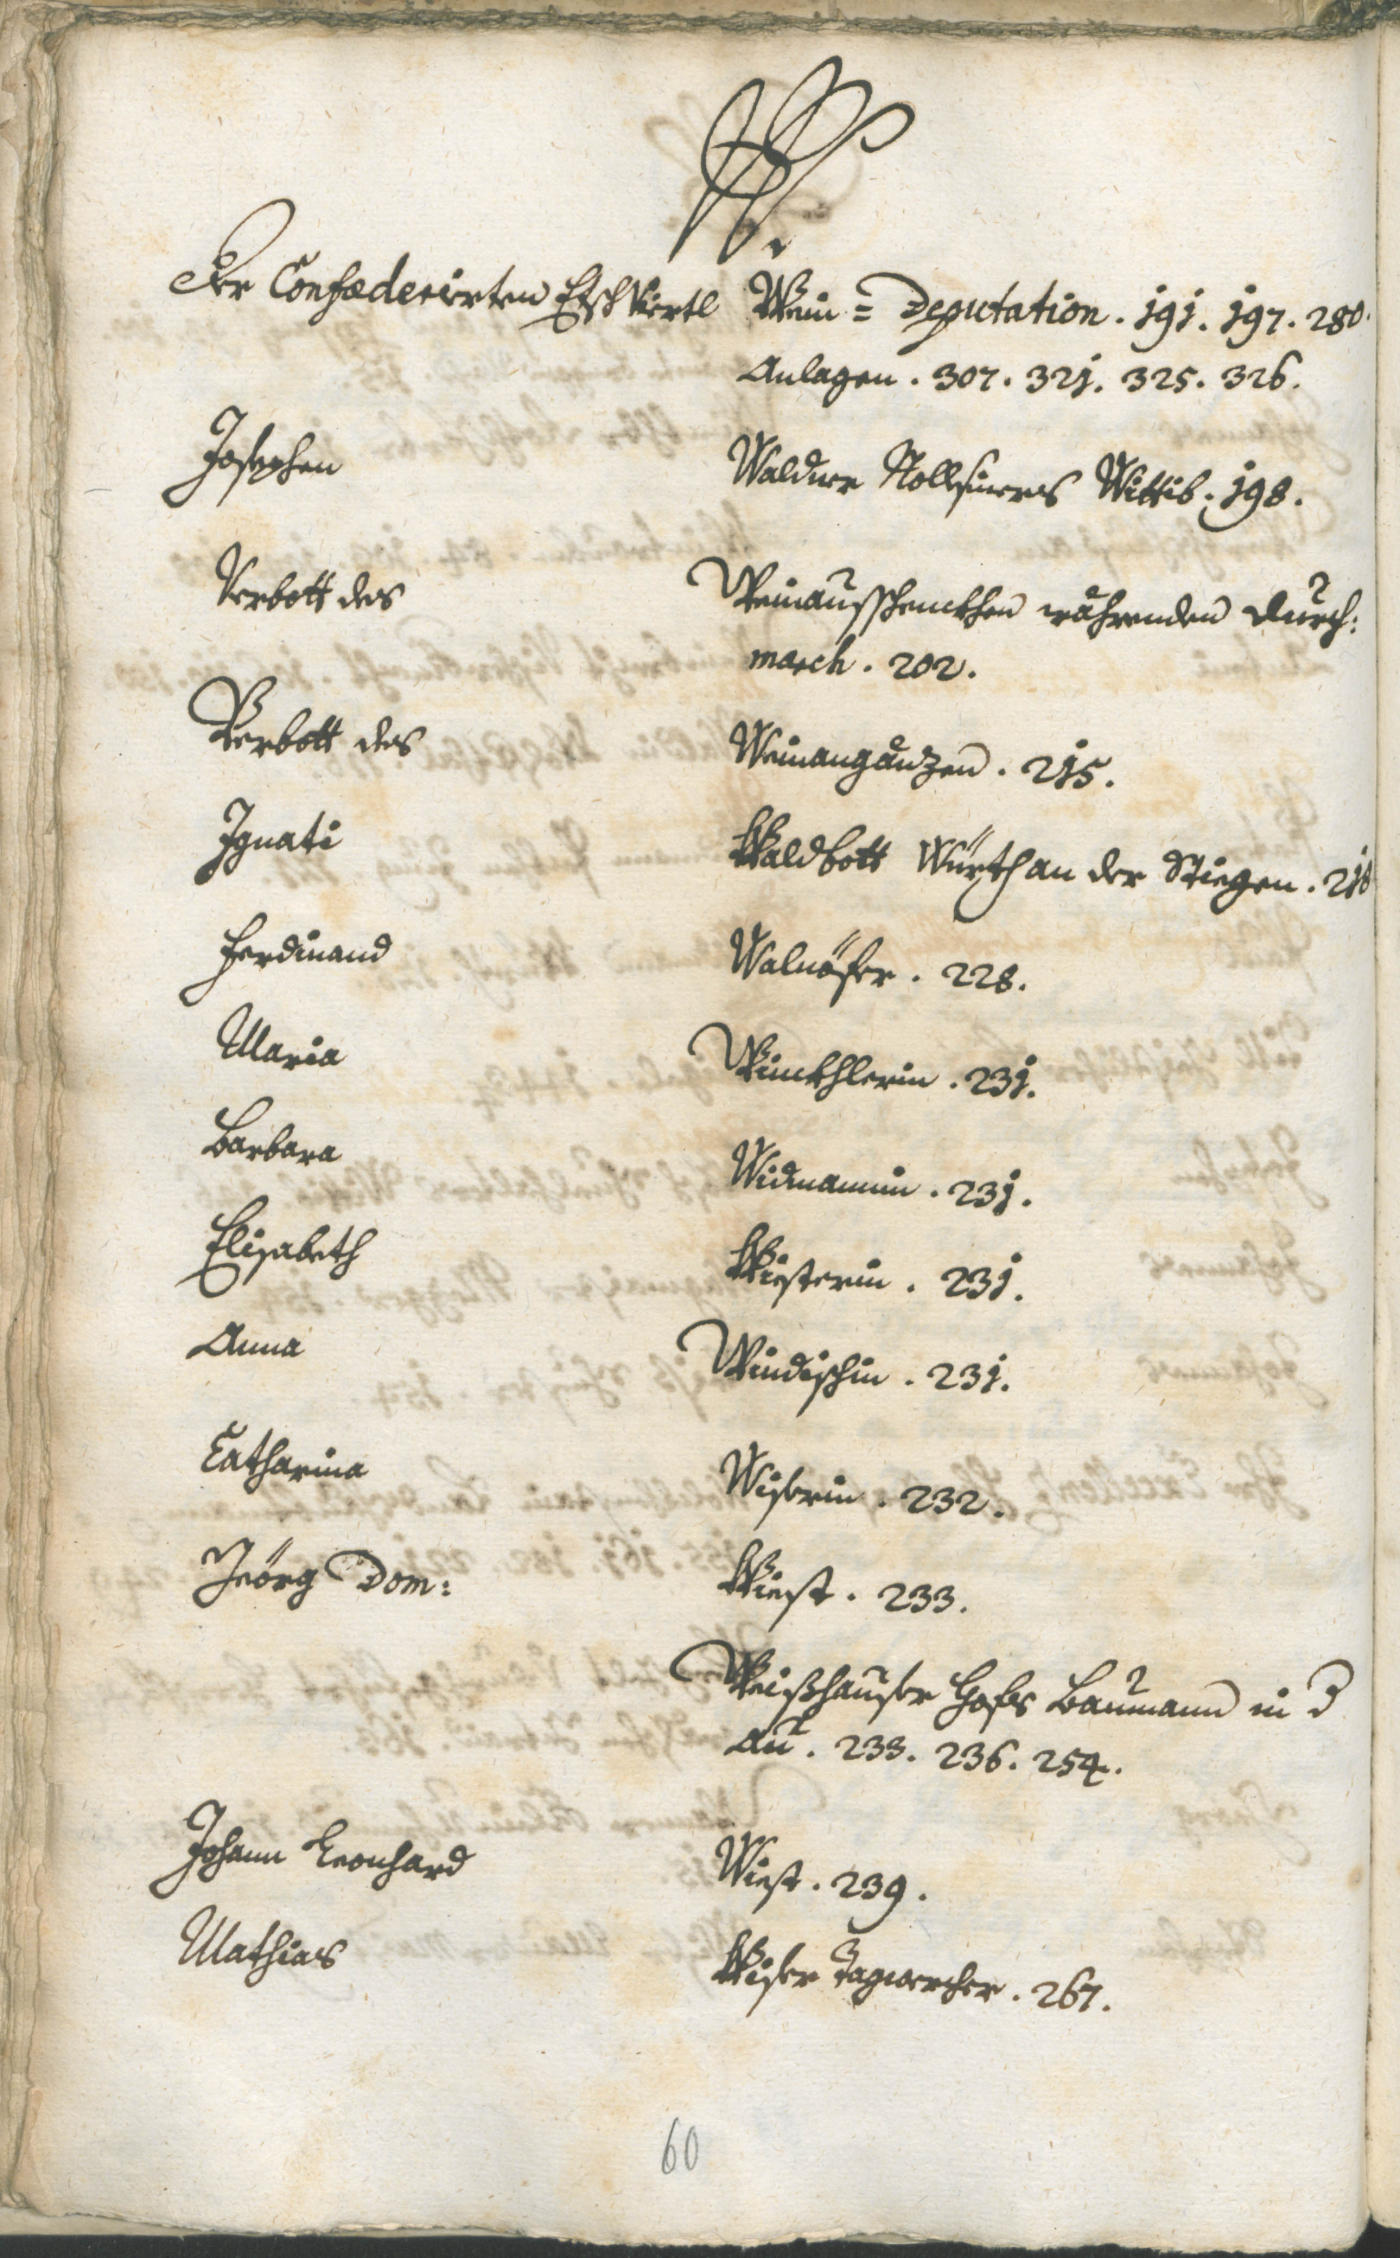 W.
Der Confæderierten Etsch Viertl Wein = Deputation . 191 . 197 . 280 .
Anlagen . 307 . 321 . 325 . 326 .
Josephen Waldner Wittib . 198 .
Verbott des Weinausschenckhen währenden Durch:
march . 202 .
Verbott des Weinangänzen . 215 .
Ignati Waldbott Würth an der Stiegen . 218
Ferdinand Walnöfer . 228 .
Maria Winckhlerin . 231 .
Barbara Widmannin . 231 .
Elisabeth Wiesterin . 231 .
Anna Windischin . 231 .
Catharina Wiserin . 232 .
Jeörg Dom: Wiest . 233 .
Weißhauser Hofes Baumann in d
Au . 233 . 236 . 254 .
Johann Leonhard Wiest . 239 .
Mathias Wiser Tagwercher . 267 .
60